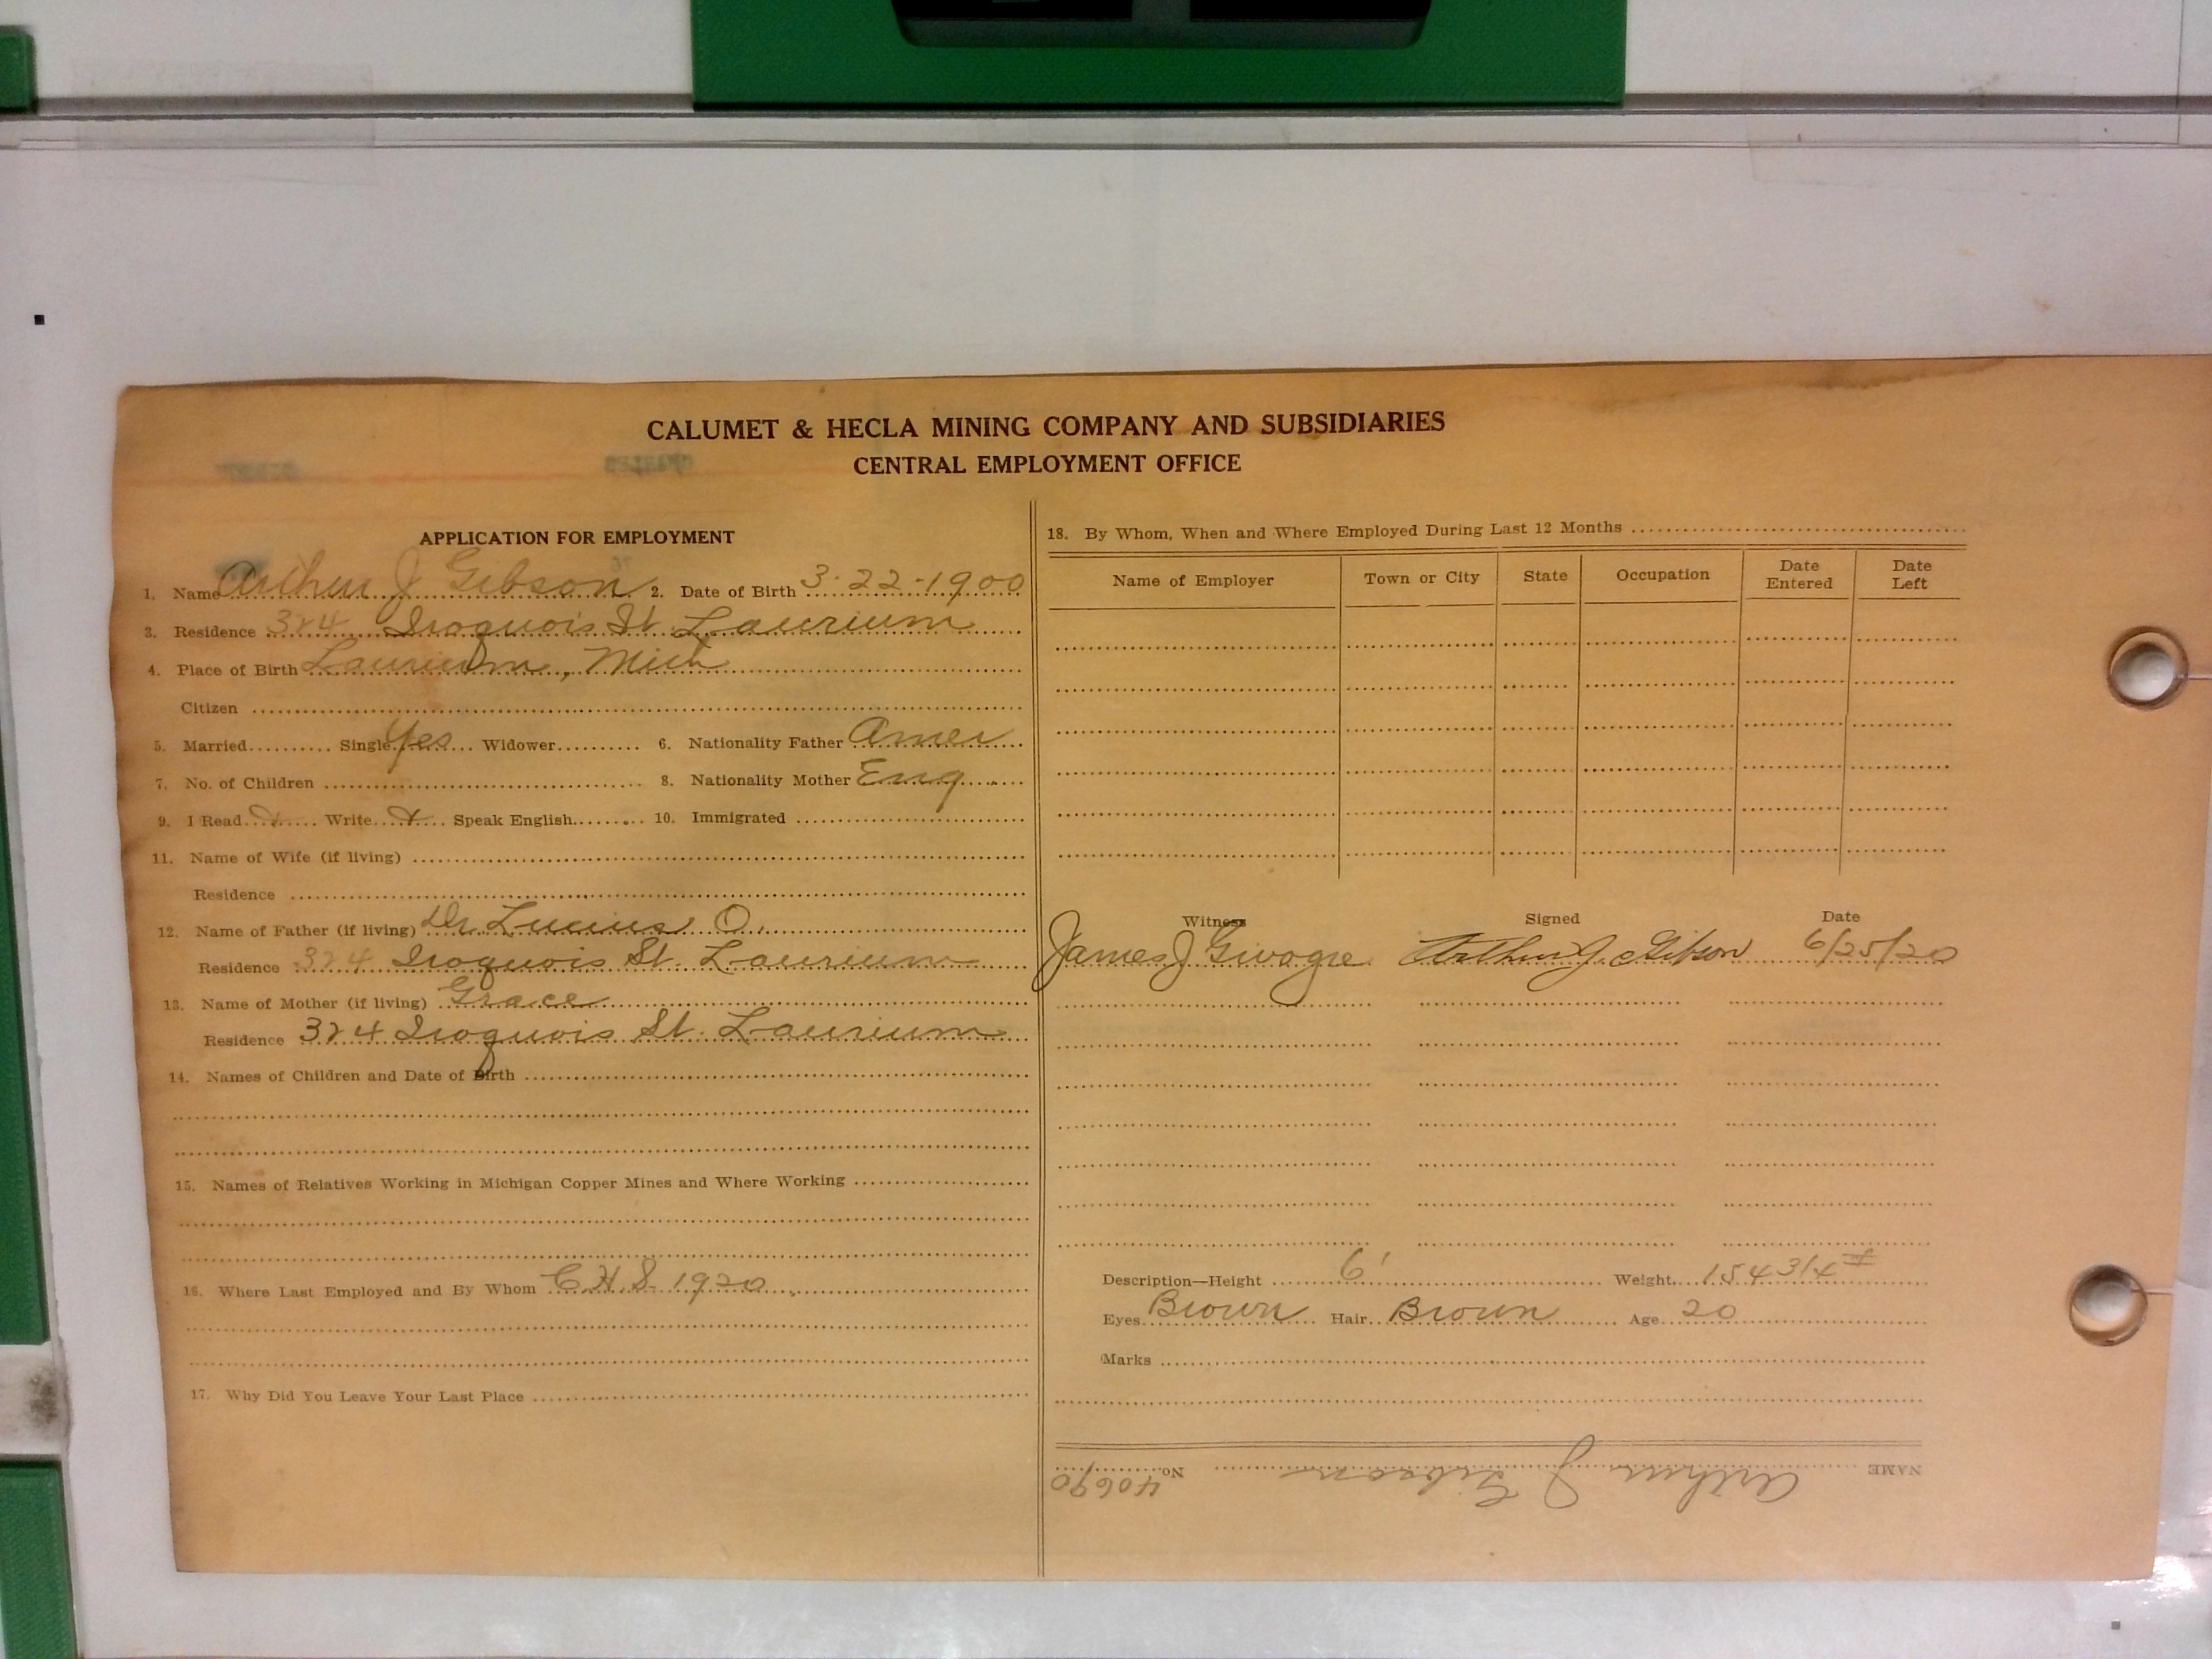 CALUMET & HECLA MINING COMPANY AND SUBSIDIARIES
CENTRAL EMPLOYMENT OFFICE
APPLICATION FOR EMPLOYMENT
1. Name Arthur J Gibson 2. Date of Birth 3-22-1900
3. Residence 324 Iroquois St Laurium
4. Place of Birth Laurium, Mich
Citizen
5. Married Single Yes Widower 6. Nationality Father Amer
7. No. of Children 8. Nationality Mother Eng
9. I Read X Write X Speak English 10. Immigrated
11. Name of Wife (if living)
Residence
12. Name of Father (if living) Dr Lucius O.
Residence 324 Iroquois St. Laurium
13. Name of Mother (if living) Grace
Residence 324 Iroquois St. Laurium
14. Names of Children and Date of Birth
15. Names of Relatives Working in Michigan Copper Mines and Where Working
16. Where Last Employed and By Whom C.H.S. 1920
17. Why Did You Leave Your Last Place
18. By Whom, When and Where Employed During Last 12 Months
Name of Employer Town or City State Occupation Date Entered Date Left
Witness Signed Date
James J Arthur J. Gibson 6/25/20
Description—Height 6' Weight 154 3/4 #
Eyes Brown Hair Brown Age 20
Marks
NAME Arthur J Gibson No. 40690